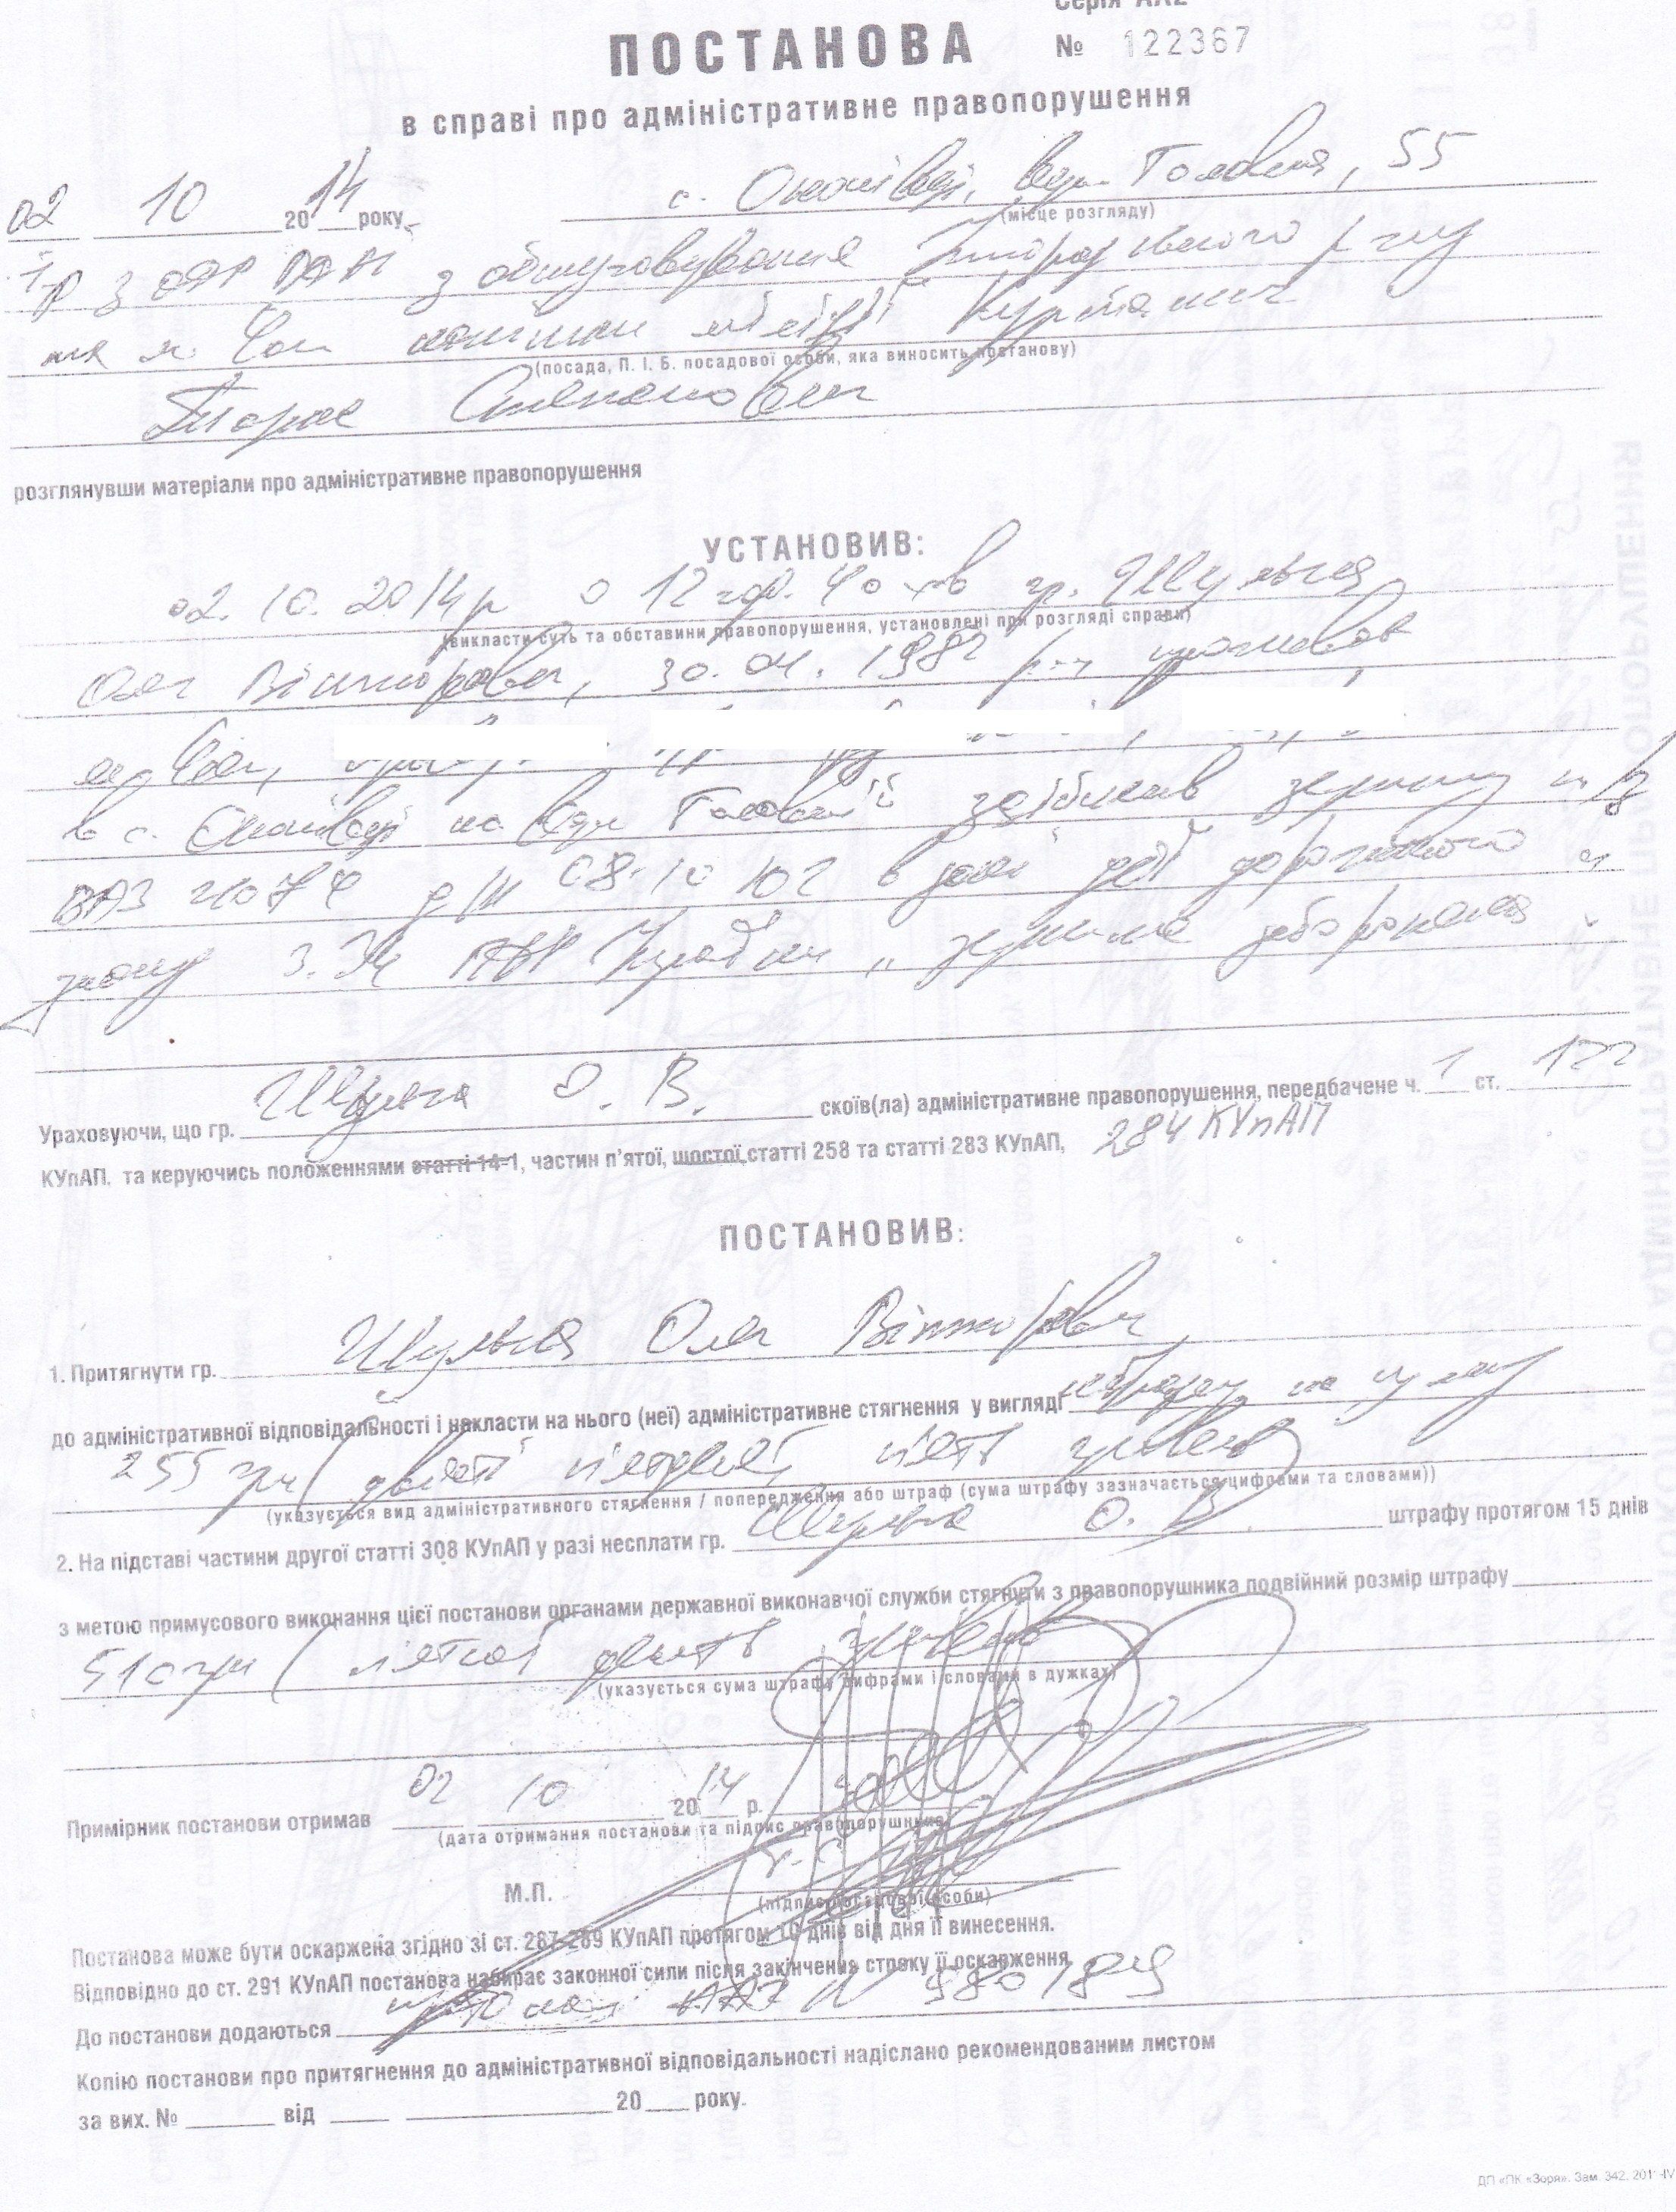 Серія АА2
ПОСТАНОВА № 122367
в справі про адміністративне правопорушення
02 10 2014 року с. Оноківці, вул. Головна, 55
(місце розгляду)
ДАІ з обслуговування Ужгородського р-ну
та м. Чоп капітан міліції
(посада, П. І. Б. посадової особи, яка виносить постанову)
Тарас Степанович
розглянувши матеріали про адміністративне правопорушення
УСТАНОВИВ:
02.10.2014р о 12 год. 40 хв гр. Шульга
(викласти суть та обставини правопорушення, установлені при розгляді справи)
Олег Вікторович, 30.04.1982 р.н
в с. Оноківці на вул Головній здійснив зупинку т/з
ВАЗ 21074 д/н в зоні дії дорожнього
знаку 3.34 ПДР України „зупинка заборонена"
Ураховуючи, що гр. Шульга О. В. скоїв(ла) адміністративне правопорушення, передбачене ч. 1 ст. 122
КУпАП. та керуючись положеннями статті 14-1, частин п'ятої, шостої статті 258 та статті 283 КУпАП, 284 КУпАП
ПОСТАНОВИВ:
1. Притягнути гр. Шульга Олег Вікторович
до адміністративної відповідальності і накласти на нього (неї) адміністративне стягнення у вигляді штрафу на суму
255 грн (двісті п'ятдесят п'ять гривень)
(указується вид адміністративного стягнення / попередження або штраф (сума штрафу зазначається цифрами та словами))
2. На підставі частини другої статті 308 КУпАП у разі несплати гр. Шульга О. В. штрафу протягом 15 днів
з метою примусового виконання цієї постанови органами державної виконавчої служби стягнути з правопорушника подвійний розмір штрафу
510 грн (п'ятсот десять гривень
(указується сума штрафу цифрами і словами в дужках)
Примірник постанови отримав 02 10 2014 р.
(дата отримання постанови та підпис правопорушника)
М.П.
(підпис посадової особи)
Постанова може бути оскаржена згідно зі ст. 287-289 КУпАП протягом 10 днів від дня її винесення.
Відповідно до ст. 291 КУпАП постанова набирає законної сили після закінчення строку її оскарження
До постанови додаються протокол
Копію постанови про притягнення до адміністративної відповідальності надіслано рекомендованим листом
за вих. № від 20 року.
ДП «ПК «Зоря». Зам. 342. 2011-IV